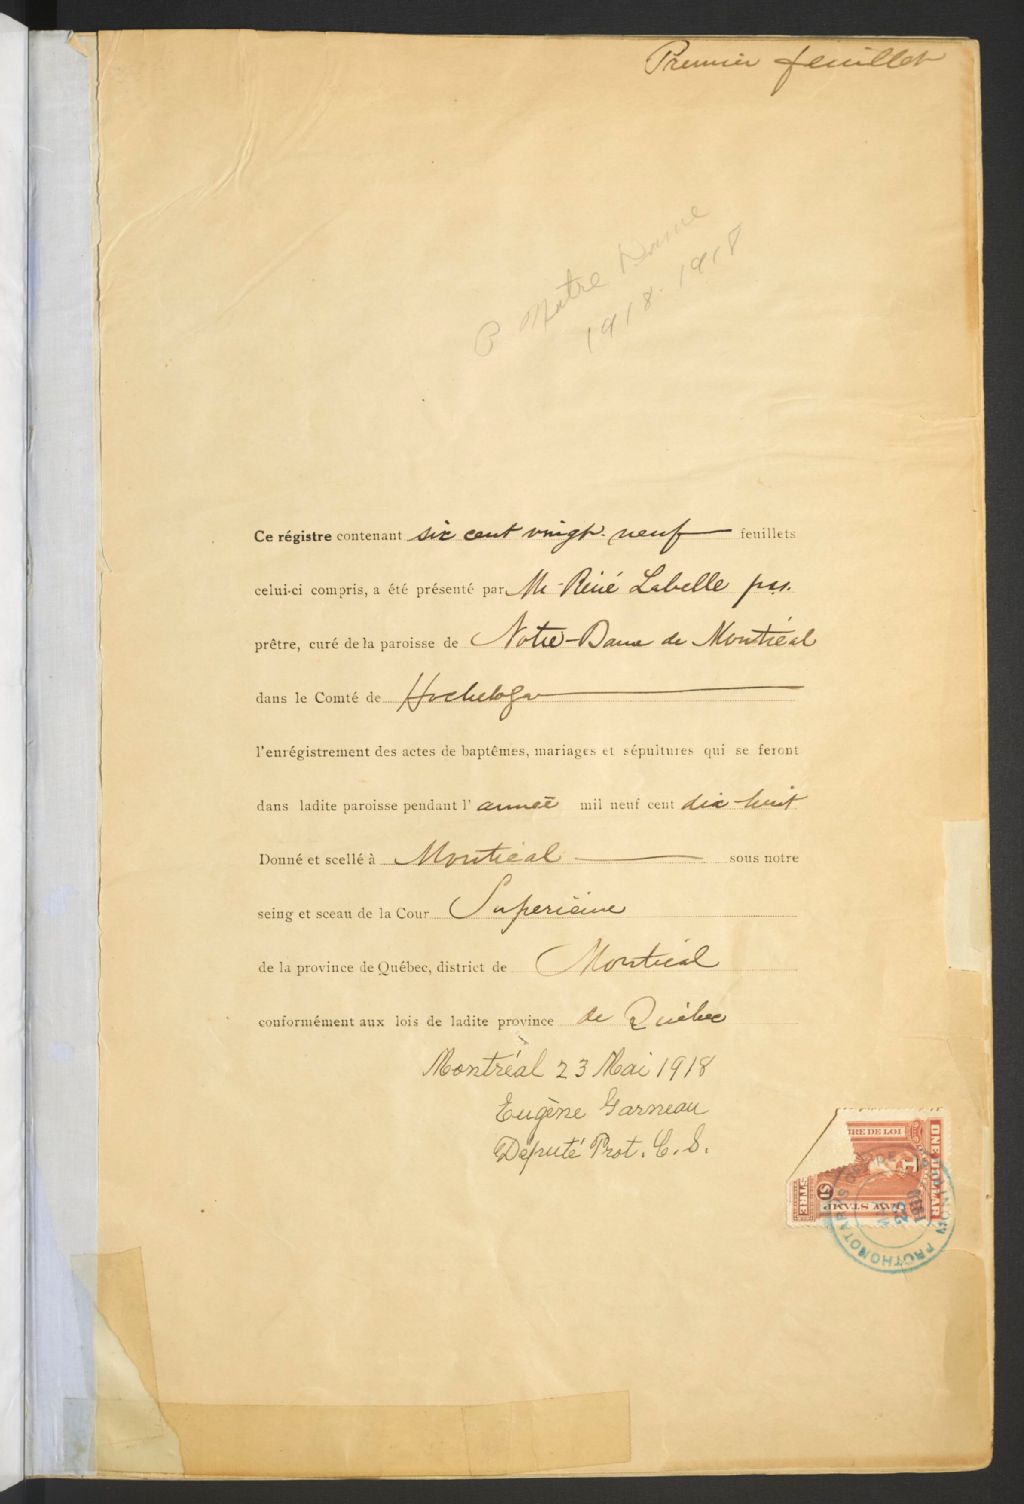 Premier feuillet
P Notre Dame
1918-1918
Ce régistre contenant six cent vingt-neuf feuillets
celui-ci compris, a été présenté par Mr René Labelle pss.
prêtre, curé de la paroisse de Notre-Dame de Montréal
dans le Comté de Hochelaga
l'enrégistrement des actes de baptêmes, mariages et sépultures qui se feront
dans ladite paroisse pendant l'année mil neuf cent dix-huit
Donné et scellé à Montréal sous notre
seing et sceau de la Cour Supérieure
de la province de Québec, district de Montréal
conformément aux lois de ladite province de Québec
Montréal 23 Mai 1918
Eugène Garneau
Député Prot. C. S.
ONE DOLLAR
RE DE LOI
LAW STAMP
$1
TRE
PROTHONOTARY'S
23